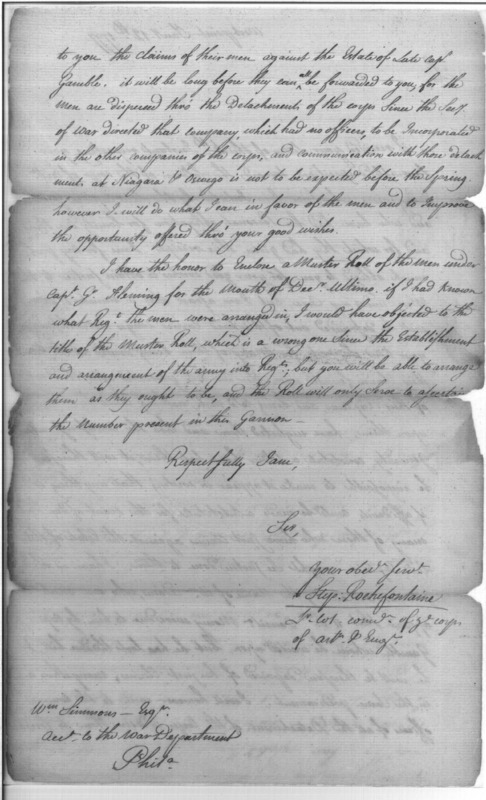 to you the claims of their men against the Estate of Late Capt.
Gamble. it will be long before they can all be forwarded to you, for the
men are dispersed thro' the Detachments of the corps Since the Secy.
of War directed that company which had no officers, to be Incorporated
in the other companies of the corps, and communication with those detach
ments at Niagara & Oswego is not to be expected before the Spring.
however I will do what I can in favor of the men and to Improve
the opportunity offered thro' your good wishes.
I have the honor to Enclose a Muster Roll of the Men under
Capt. G. Fleming for the Month of Decr. Ultimo. if I had known
what Regt. The men were arranged in, I would have objected to the
title of the Muster Roll, which is a wrong one Since the Establishment
and arrangement of the army into Regts.; but you will be able to arrange
them as they ought to be, and the Roll will only Serve to ascertain
the number present in this Garrison
Respectfully I am,
Sir,
your obedt. Servt.
Step. Rochefontaine
Lt. Col. comdt. of ye corps
of arty. & Engrs.
Wm Simmons - Esqr.
acct. to the War Department
Phila.